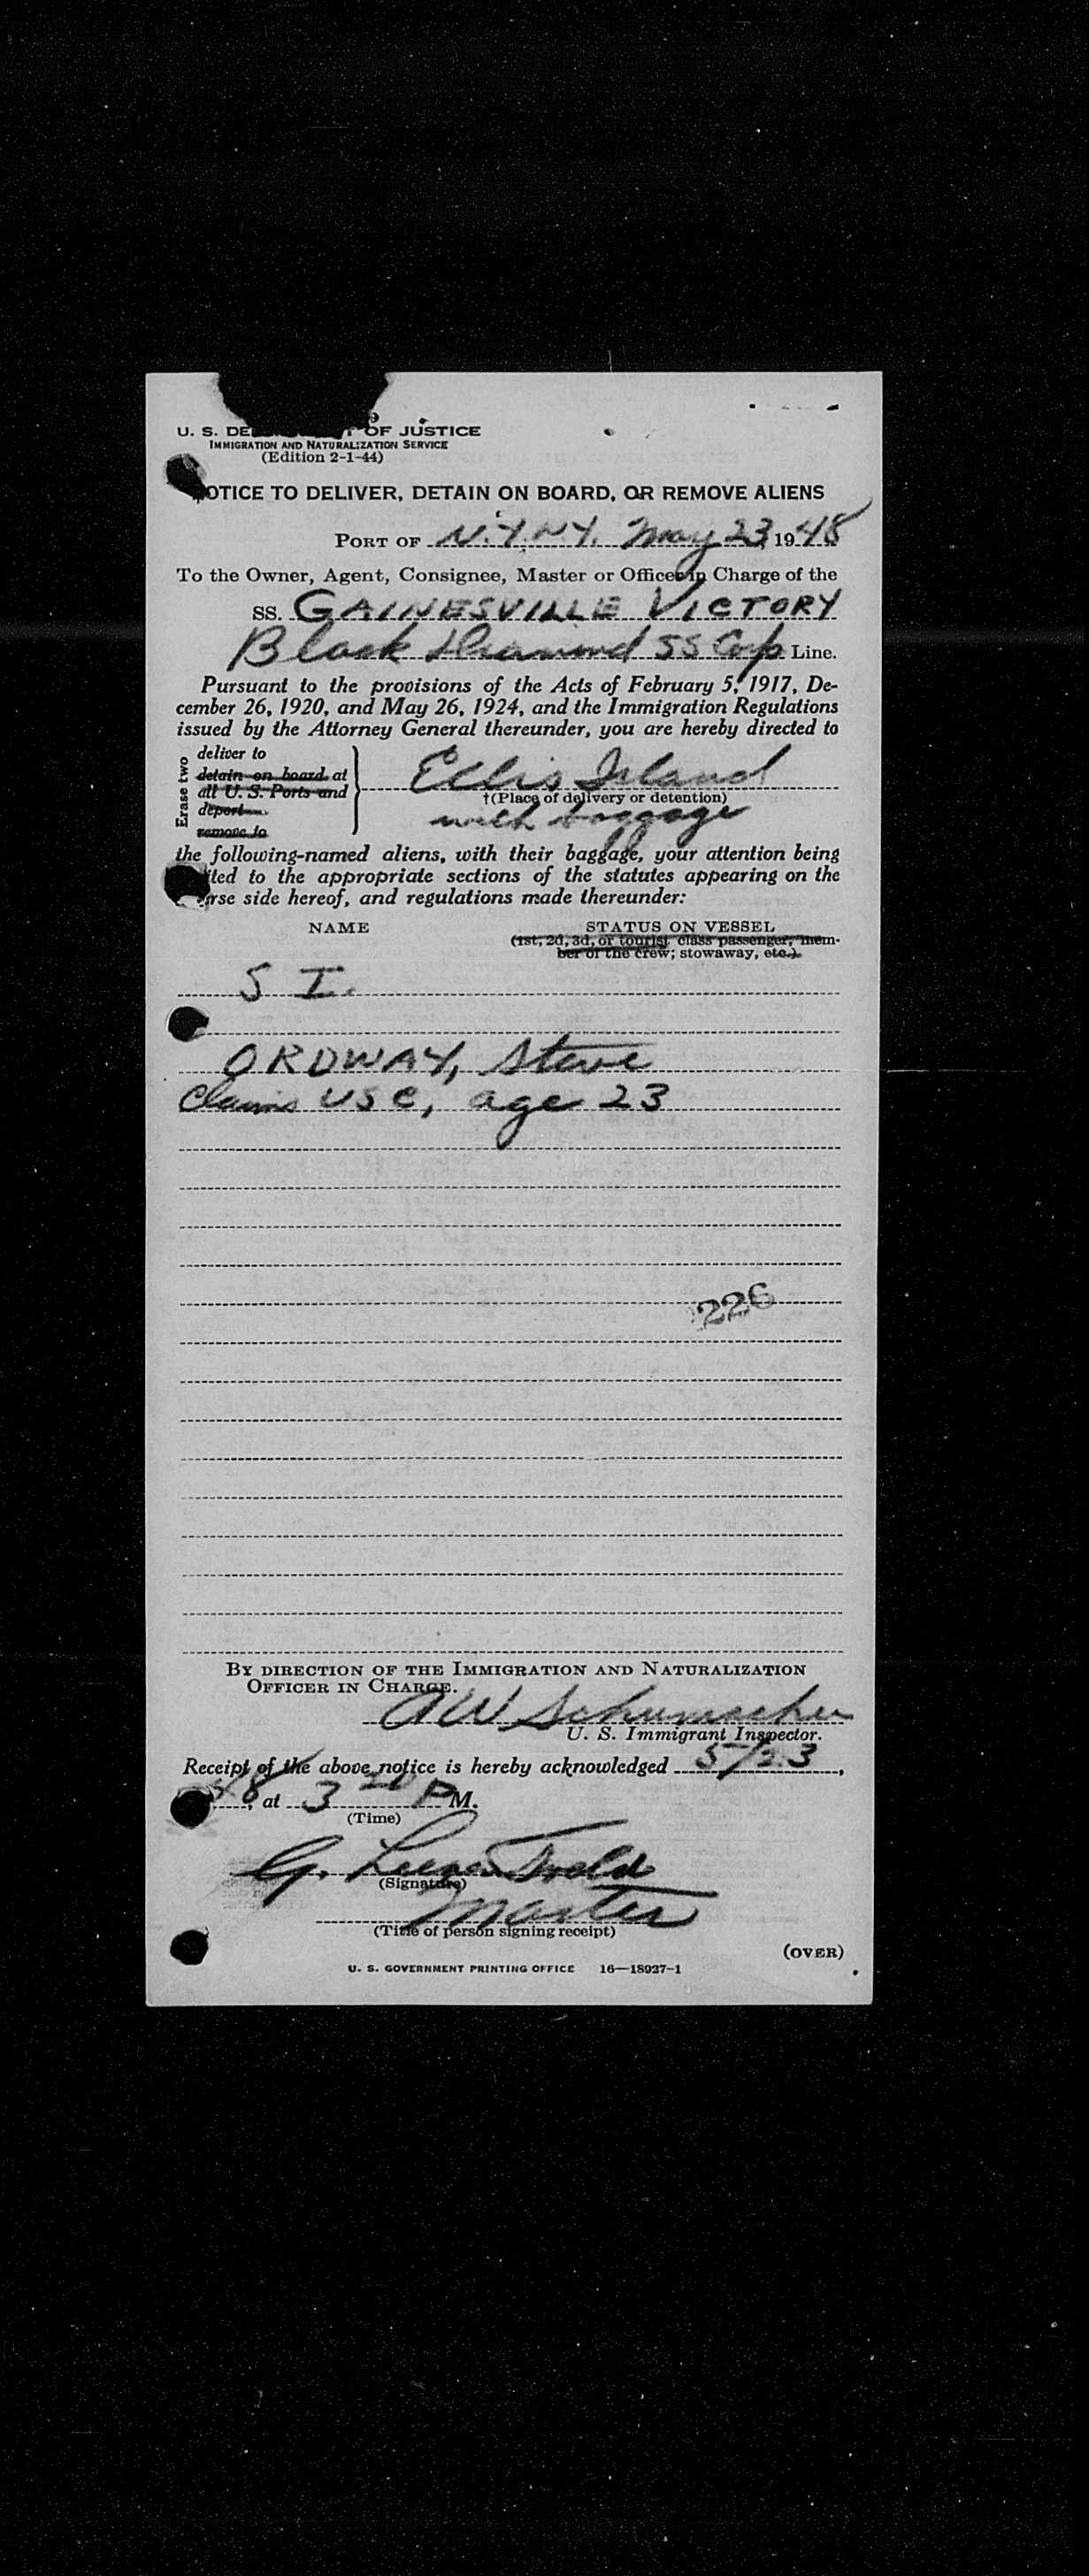 U. S. DE OF JUSTICE
IMMIGRATION AND NATURALIZATION SERVICE
(Edition 2-1-44)
OTICE TO DELIVER, DETAIN ON BOARD, OR REMOVE ALIENS
PORT OF N.Y.N.Y. May 23, 1948
To the Owner, Agent, Consignee, Master or Officer in Charge of the
SS. GAINESVILLE VICTORY
Black Diamond SS Corp Line.
Pursuant to the provisions of the Acts of February 5, 1917, De-
cember 26, 1920, and May 26, 1924, and the Immigration Regulations
issued by the Attorney General thereunder, you are hereby directed to
Erase two
deliver to
detain on board at
all U. S. Ports and
deport
remove to
Ellis Island
†(Place of delivery or detention)
with baggage
the following-named aliens, with their baggage, your attention being
ited to the appropriate sections of the statutes appearing on the
rse side hereof, and regulations made thereunder:
NAME STATUS ON VESSEL
(1st, 2d, 3d, or tourist class passenger, mem-
ber of the crew; stowaway, etc.)
S I.
ORDWAY, Steve
Claims USC, age 23
226
BY DIRECTION OF THE IMMIGRATION AND NATURALIZATION
OFFICER IN CHARGE.
AW Schumacher
U. S. Immigrant Inspector.
Receipt of the above notice is hereby acknowledged 5/23,
48, at 3 20 P M.
(Time)
G.
(Signature)
Master
(Title of person signing receipt)
(OVER)
U. S. GOVERNMENT PRINTING OFFICE 16—18927-1